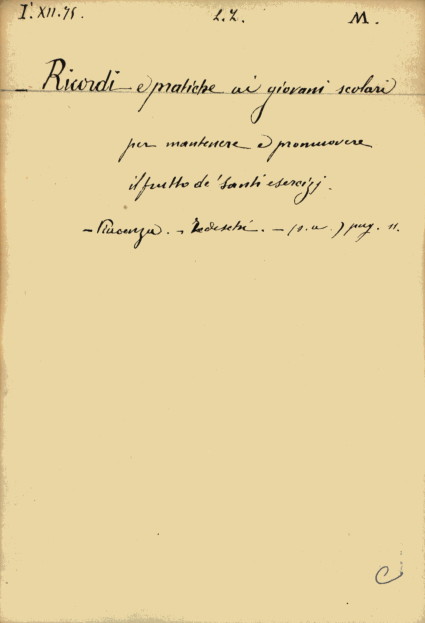 I'.XII.75. L.Z. M.
Ricordi e pratiche ai giovani scolari
per mantenere e promuovere
il frutto de' santi esercizj.
- Piacenza. - Tedeschi. - (s.a.) pag. 11.
C